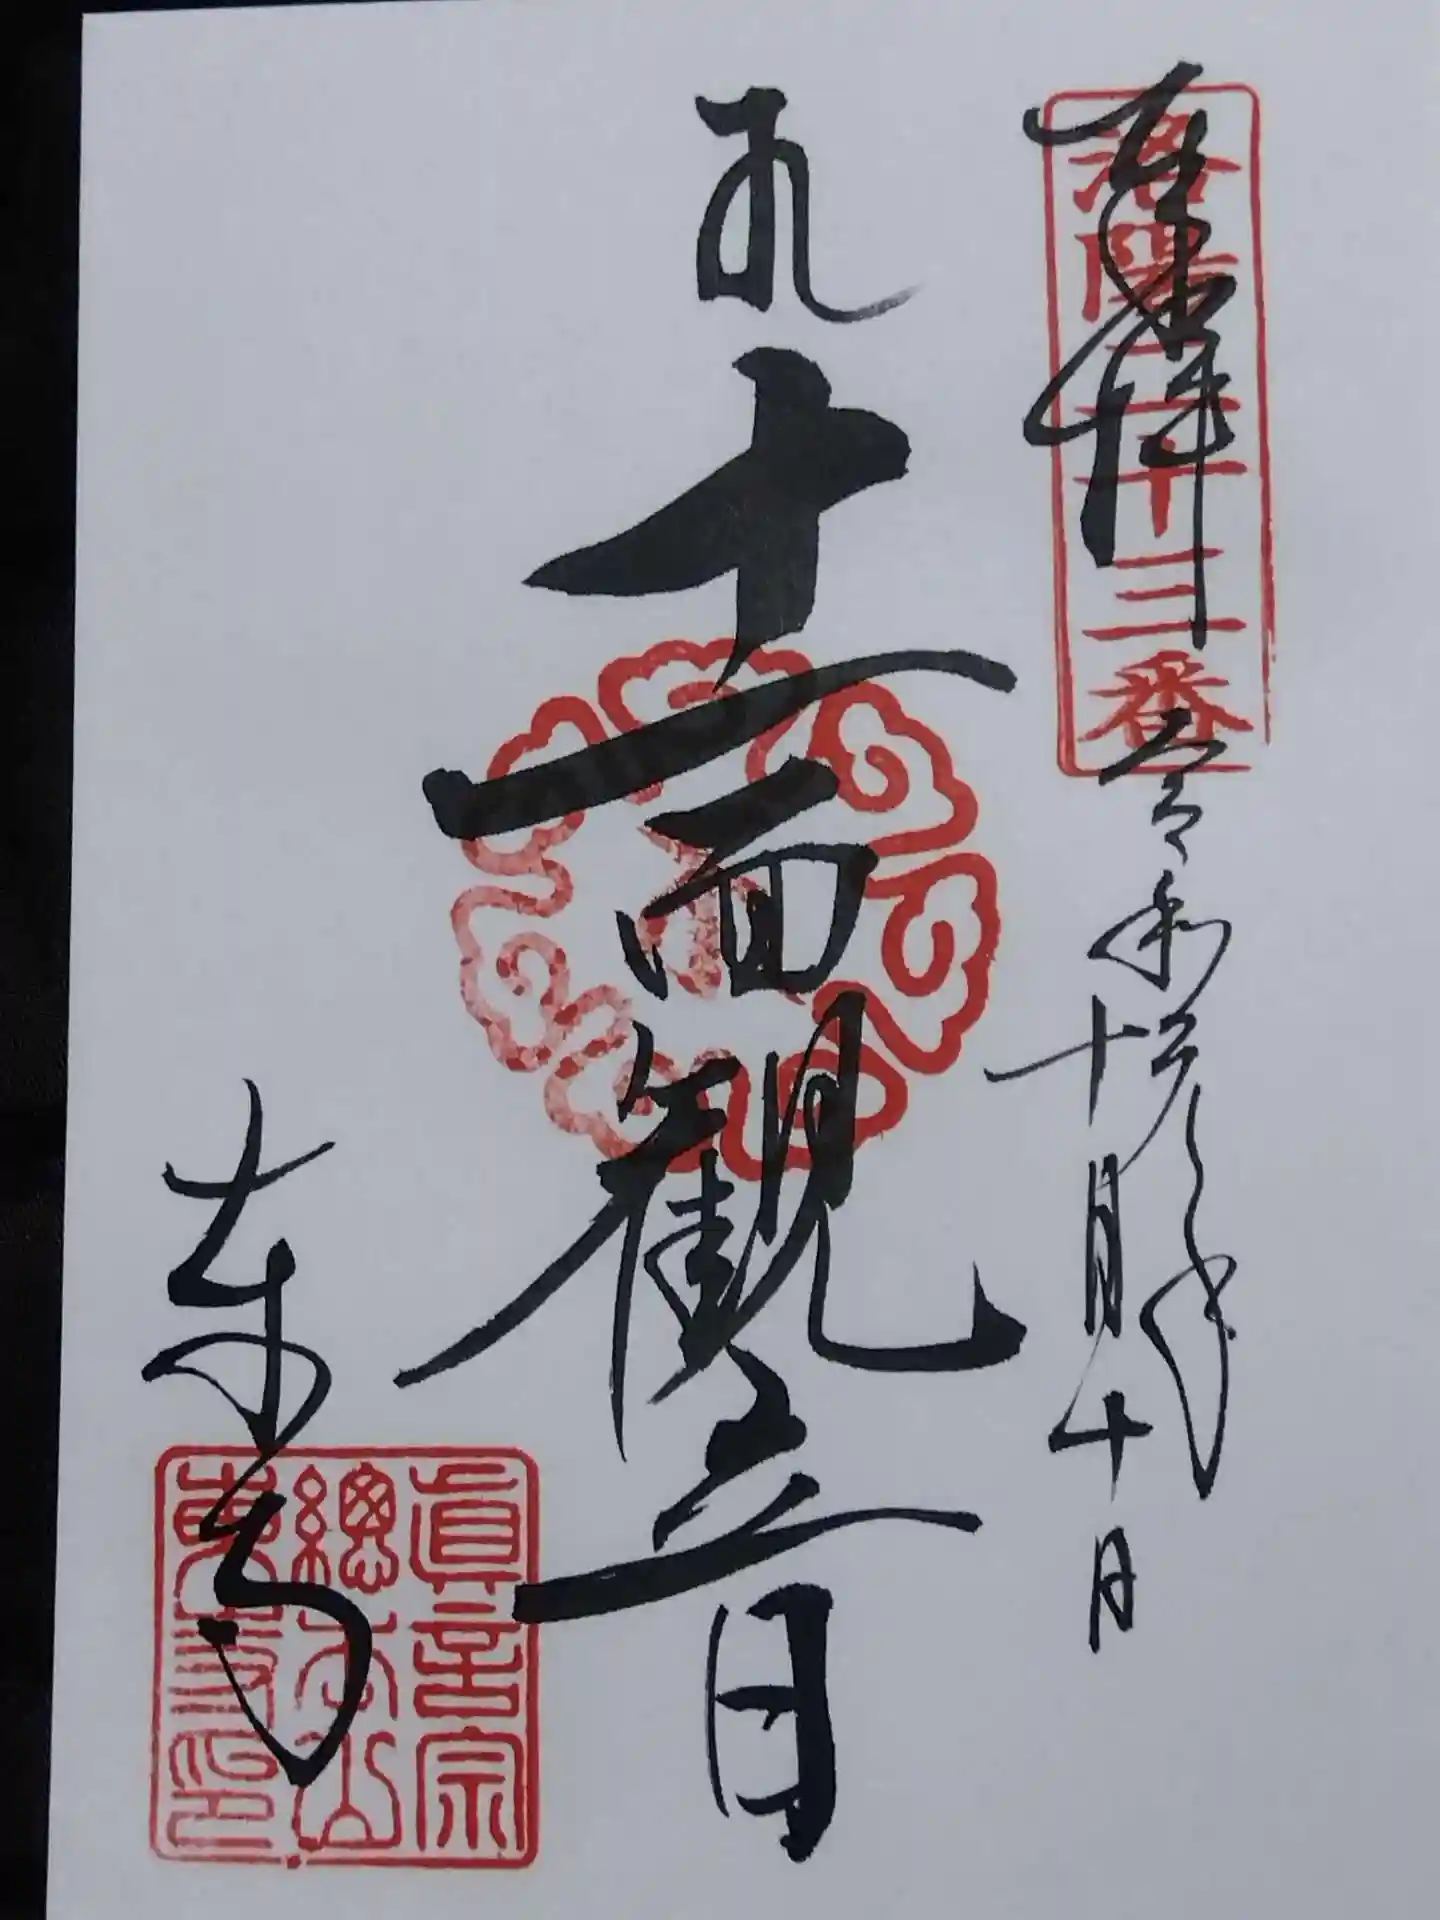 奉拝
洛陽二十三番
令和元年
十月十日
十一面観音
東寺
眞言宗
總本山
東寺印